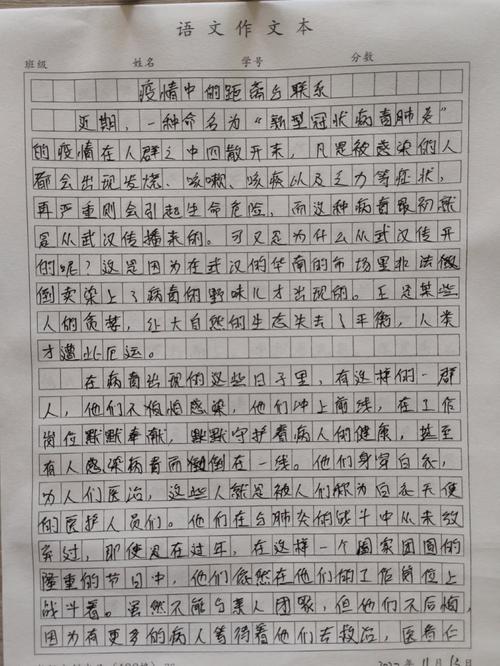 语文作文本
班级 姓名 学号 分数
疫情中的距离与联系
近期,一种命名为“新型冠状病毒肺炎”
的疫情在人群之中四散开来,凡是被感染的人
都会出现发烧、咳嗽、咳痰以及乏力等症状,
再严重则会引起生命危险,而这种病毒最初就
是从武汉传播来的。可又是为什么从武汉传开
的呢?这是因为在武汉的华南的市场里非法做
倒卖染上了病毒的野味儿才出现的。正是某些
人的贪婪,让大自然的生态失去了平衡,人类
才遭此厄运。
在病毒出现的这些日子里,有这样的一群
人,他们不惧怕感染,他们冲上前线,在工作
岗位默默奉献,默默守护着病人的健康,甚至
有人感染病毒而倒在一线。他们身穿白衣,
为人们医治,这些人就是被人们称为白衣天使
的医护人员们。他们在与肺炎的战斗中从未放
弃过,即使是在过年,在这样一个阖家团圆的
隆重的节日中,他们依然在他们的工作岗位上
战斗着。虽然不能与亲人团聚,但他们不后悔,
因为有更多的病人等待着他们去救治,医者仁